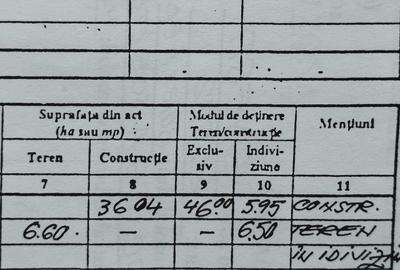 Suprafața din act
(ha sau mp)
Modul de deținere
Teren/construcție
Mențiuni
Teren
Construcție
Exclu-
siv
Indivi-
ziune
7 8 9 10 11
3604 46.00 5.95 CONSTR.
6.60. — — 6.50 TEREN
IN IDIVIZI